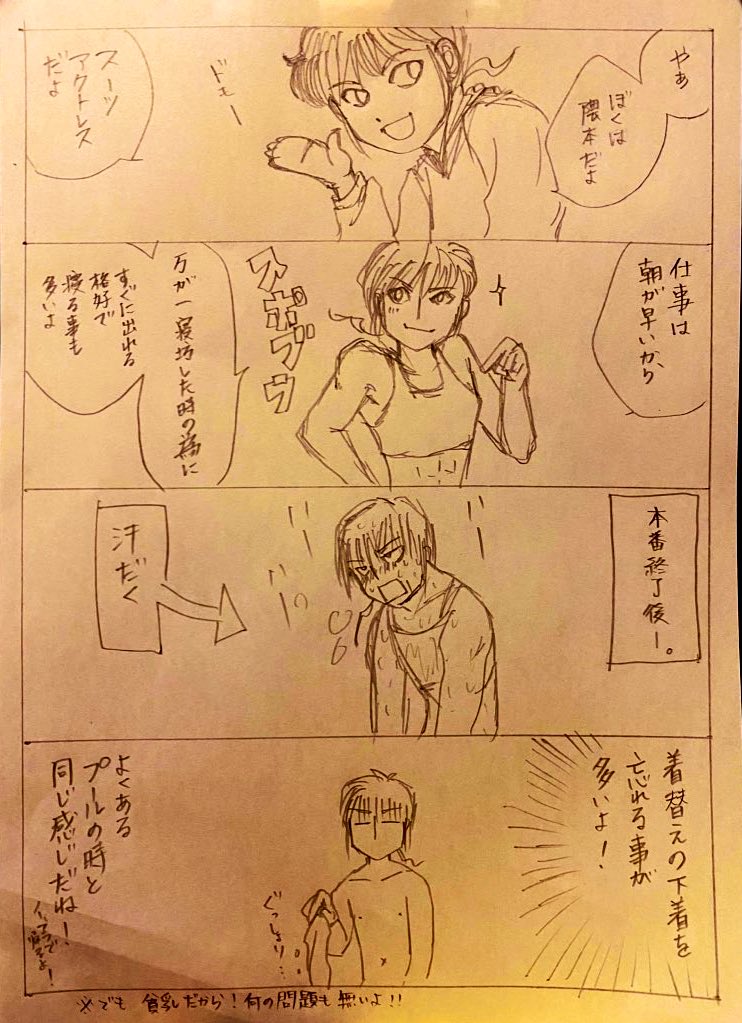 やぁ
ぼくは
隈本だよ
ドモー
スーツ
アクトレス
だよ
仕事は
朝が早いから
スポブラ
万が一寝坊した時の為に
すぐに出れる
格好で
寝る事も
多いよ
本番終了後ー。
汗だく
着替えの下着を
忘れる事が
多いよ！
ぐっしょり…
よくある
プールの時と
同じ感じだね！
※でも貧乳だから！何の問題も無いよ!!